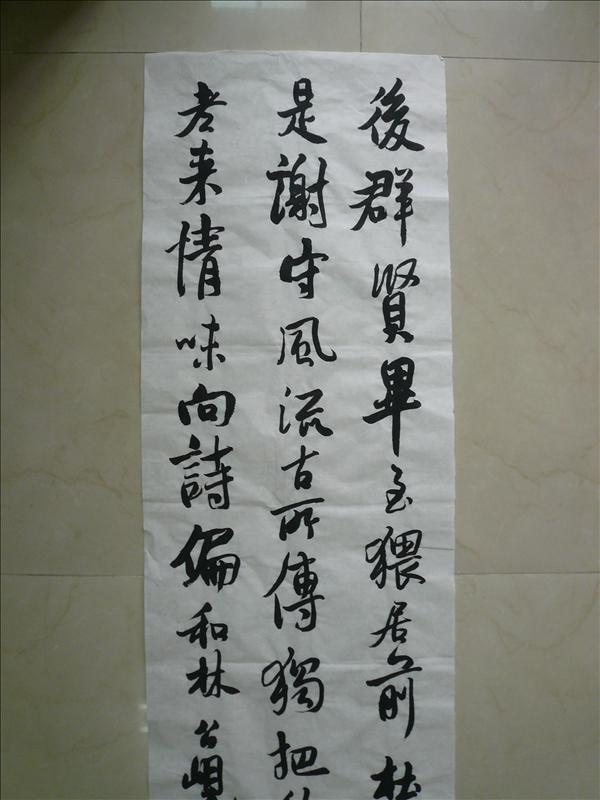 後群賢畢至猥居前杜
是謝守風流古所傳獨把
老来情味向詩偏和林公峴